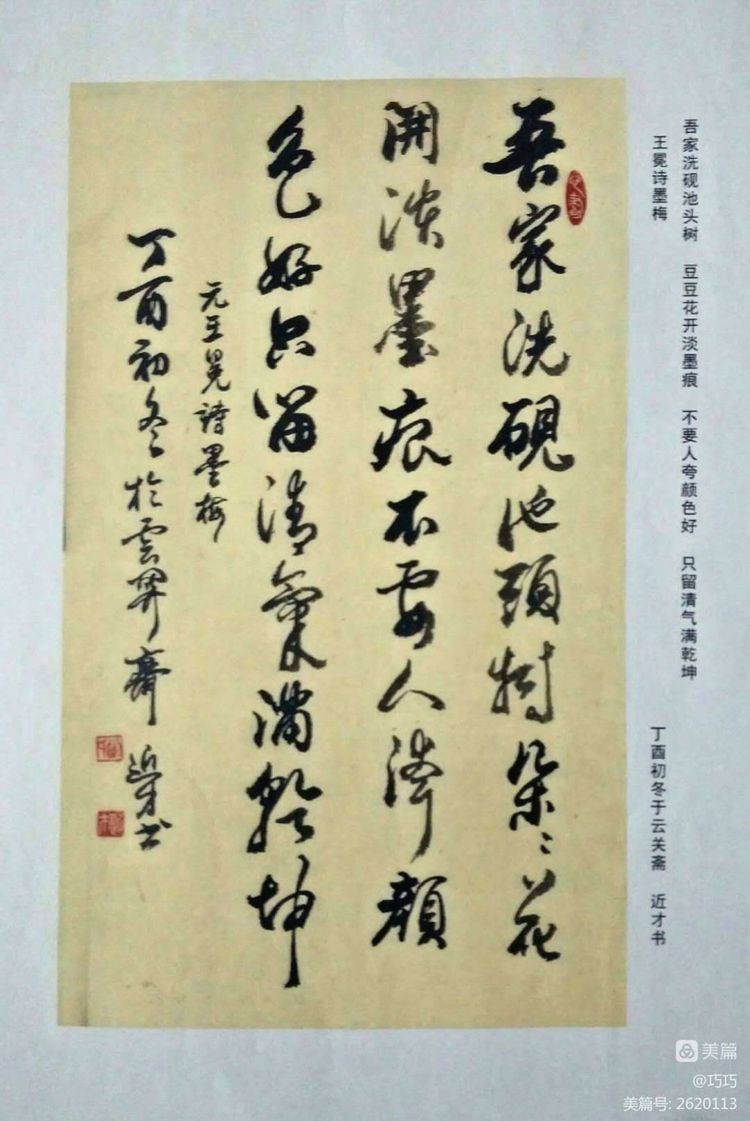 吾家洗砚池头树 豆豆花开淡墨痕 不要人夸颜色好 只留清气满乾坤
王冕诗墨梅 丁酉初冬于云关斋 近才书
吾家洗硯池頭樹朵々花
開淡墨痕不要人誇顏
色好只留清氣滿乾坤
元王冕詩墨梅
丁酉初冬於雲關齋 近才書
美篇
@巧巧
美篇号: 2620113